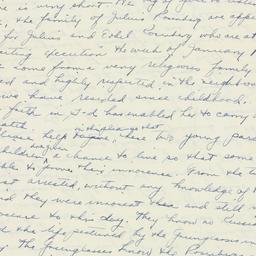 is very short. We beg of you to
the family of Julius Rosenberg are
for Julius and Ethel Rosenberg who are
execution the week of January
come from a very religious family
and highly respected in the neighbor
have resided since childhood.
faith in G-d has enabled her to carry
in this plea that
help these two young
regain
children a chance to live so that some
to prove their innocence. From the
arrested, without any knowledge of
they were innocent then and still
to this day. They know no Russian
the lies pestered by the Greenglasses
The Greenglasses know the Rosenbergs